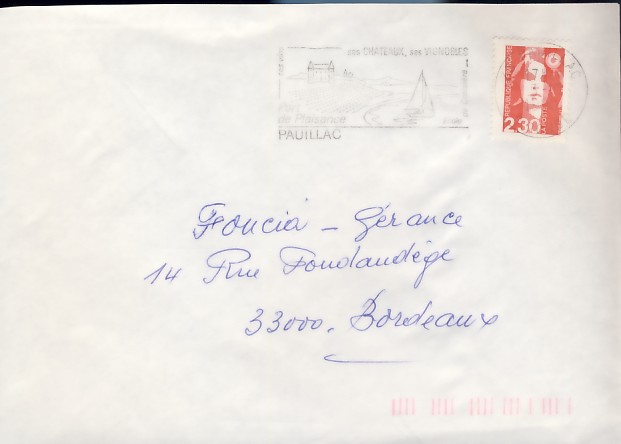 ses CHATEAUX, ses VIGNOBLES
de Plaisance
PAUILLAC
REPUBLIQUE FRANÇAISE
2,30
LA POSTE
Foncia - Gérance
14 Rue Fondaudège
33000. Bordeaux